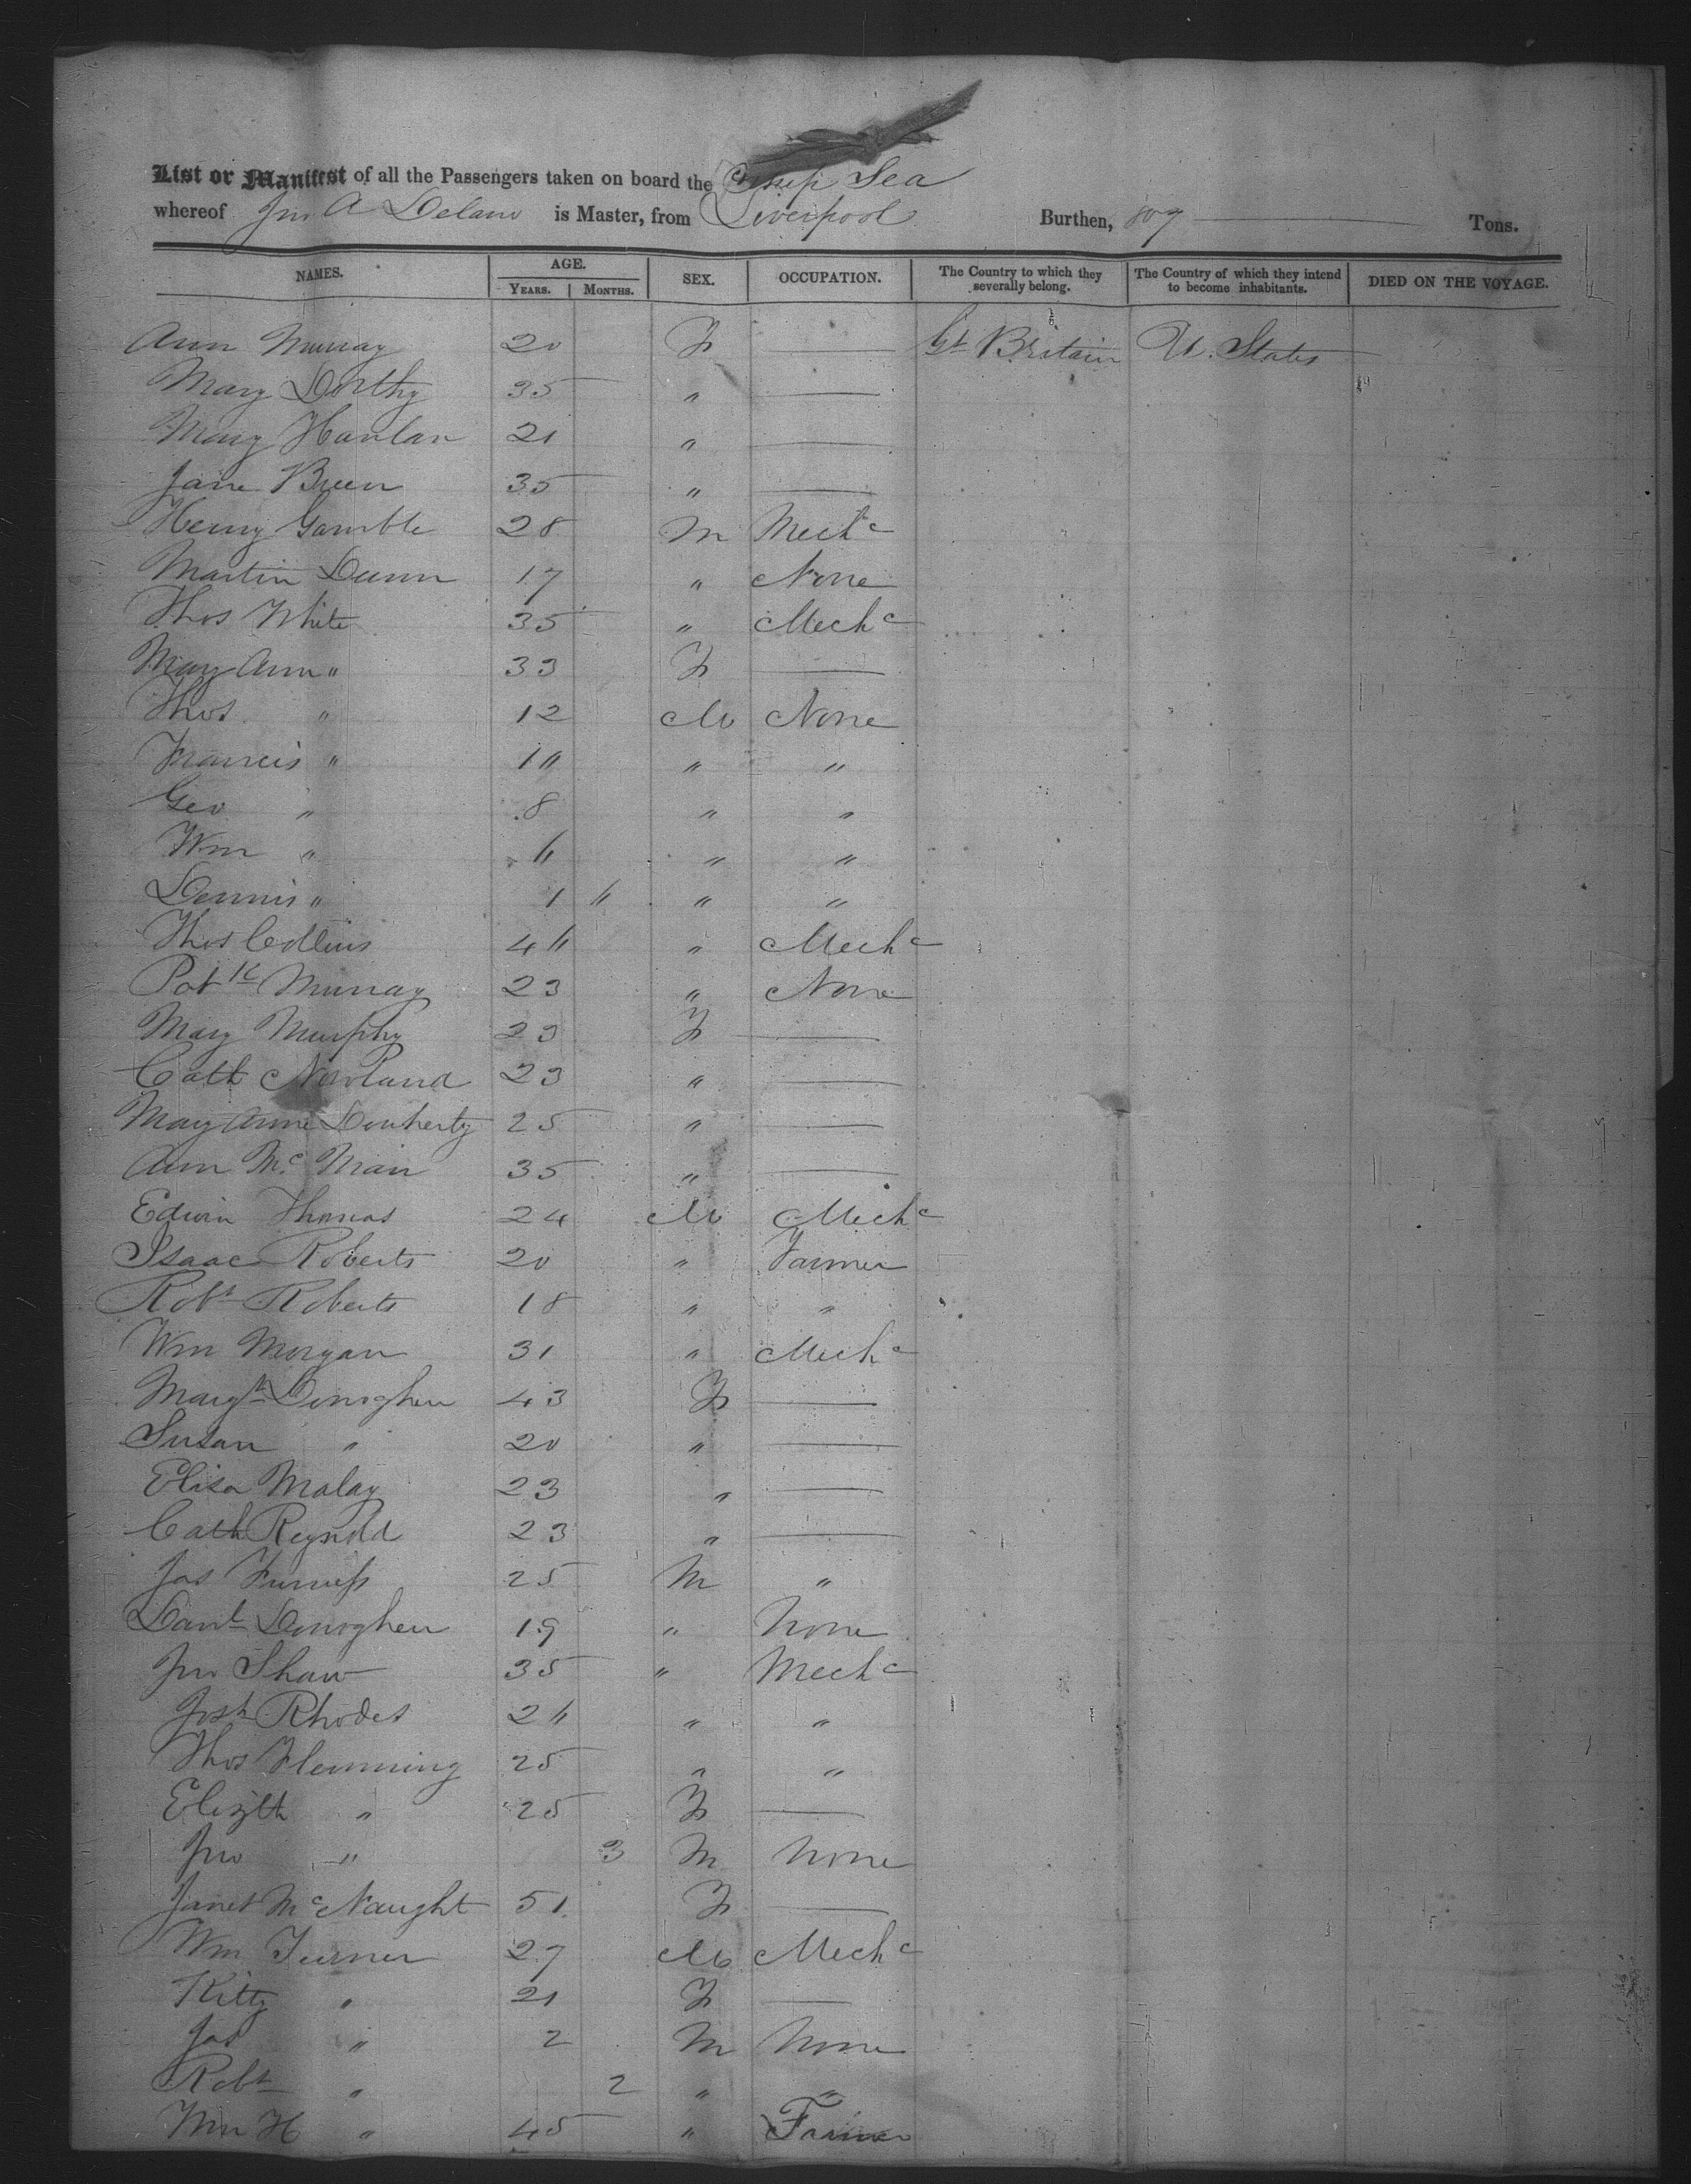 List or Manifest of all the Passengers taken on board the Ship Sea
whereof Jno A Delano is Master, from Liverpool Burthen, 807 Tons.
NAMES. AGE. YEARS. MONTHS. SEX. OCCUPATION. The Country to which they severally belong. The Country of which they intend to become inhabitants. DIED ON THE VOYAGE.
Ann Murray 20 F — Gt Britain U. States
Mary Dorthy 35 " —
Mary Hanlan 21 " —
Jane Breen 35 " —
Henry Gamble 28 M Mechc
Martin Dunn 17 " None
Thos White 35 " Mechc
Mary Ann " 33 F —
Thos " 12 M None
Francis " 10 " "
Geo " 8 " "
Wm " 6 " "
Dennis " 1 6 " "
Thos Collins 46 " Mechc
Patk Murray 23 " None
Mary Murphy 23 F —
Cath Nowland 23 " —
Mary Anne Douherty 25 " —
Ann Mc Man 35 " —
Edwin Thomas 24 M Mechc
Isaac Roberts 20 " Farmer
Robt Roberts 18 " "
Wm Morgan 31 " Mechc
Margt Donogheu 43 F —
Susan " 20 " —
Elisa Malay 23 " —
Cath Reynold 23 " —
Jas Furness 25 M "
Danl Donogheu 19 " None
Jno Shaw 35 " Mechc
Josh Rhodes 26 " "
Thos Flemming 25 " "
Elizth " 25 F —
Jno " 3 M None
Janet McNaught 51 F —
Wm Turner 27 M Mechc
Kitty " 21 F —
Jas " 2 M None
Robt " 2 " "
Wm H " 45 " Farmer